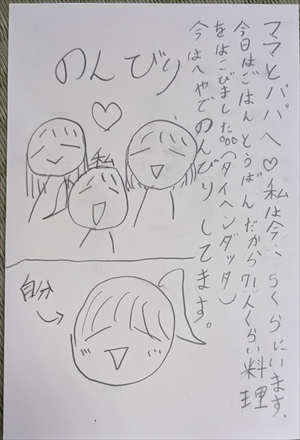 ママとパパへ♡私は今、らくらにいます。
今日はごはんとうばんだから7人くらい料理
をはこびました。。。(タイヘンダッタ)
今はへやでのんびりしてます。
のんびり
私
自分